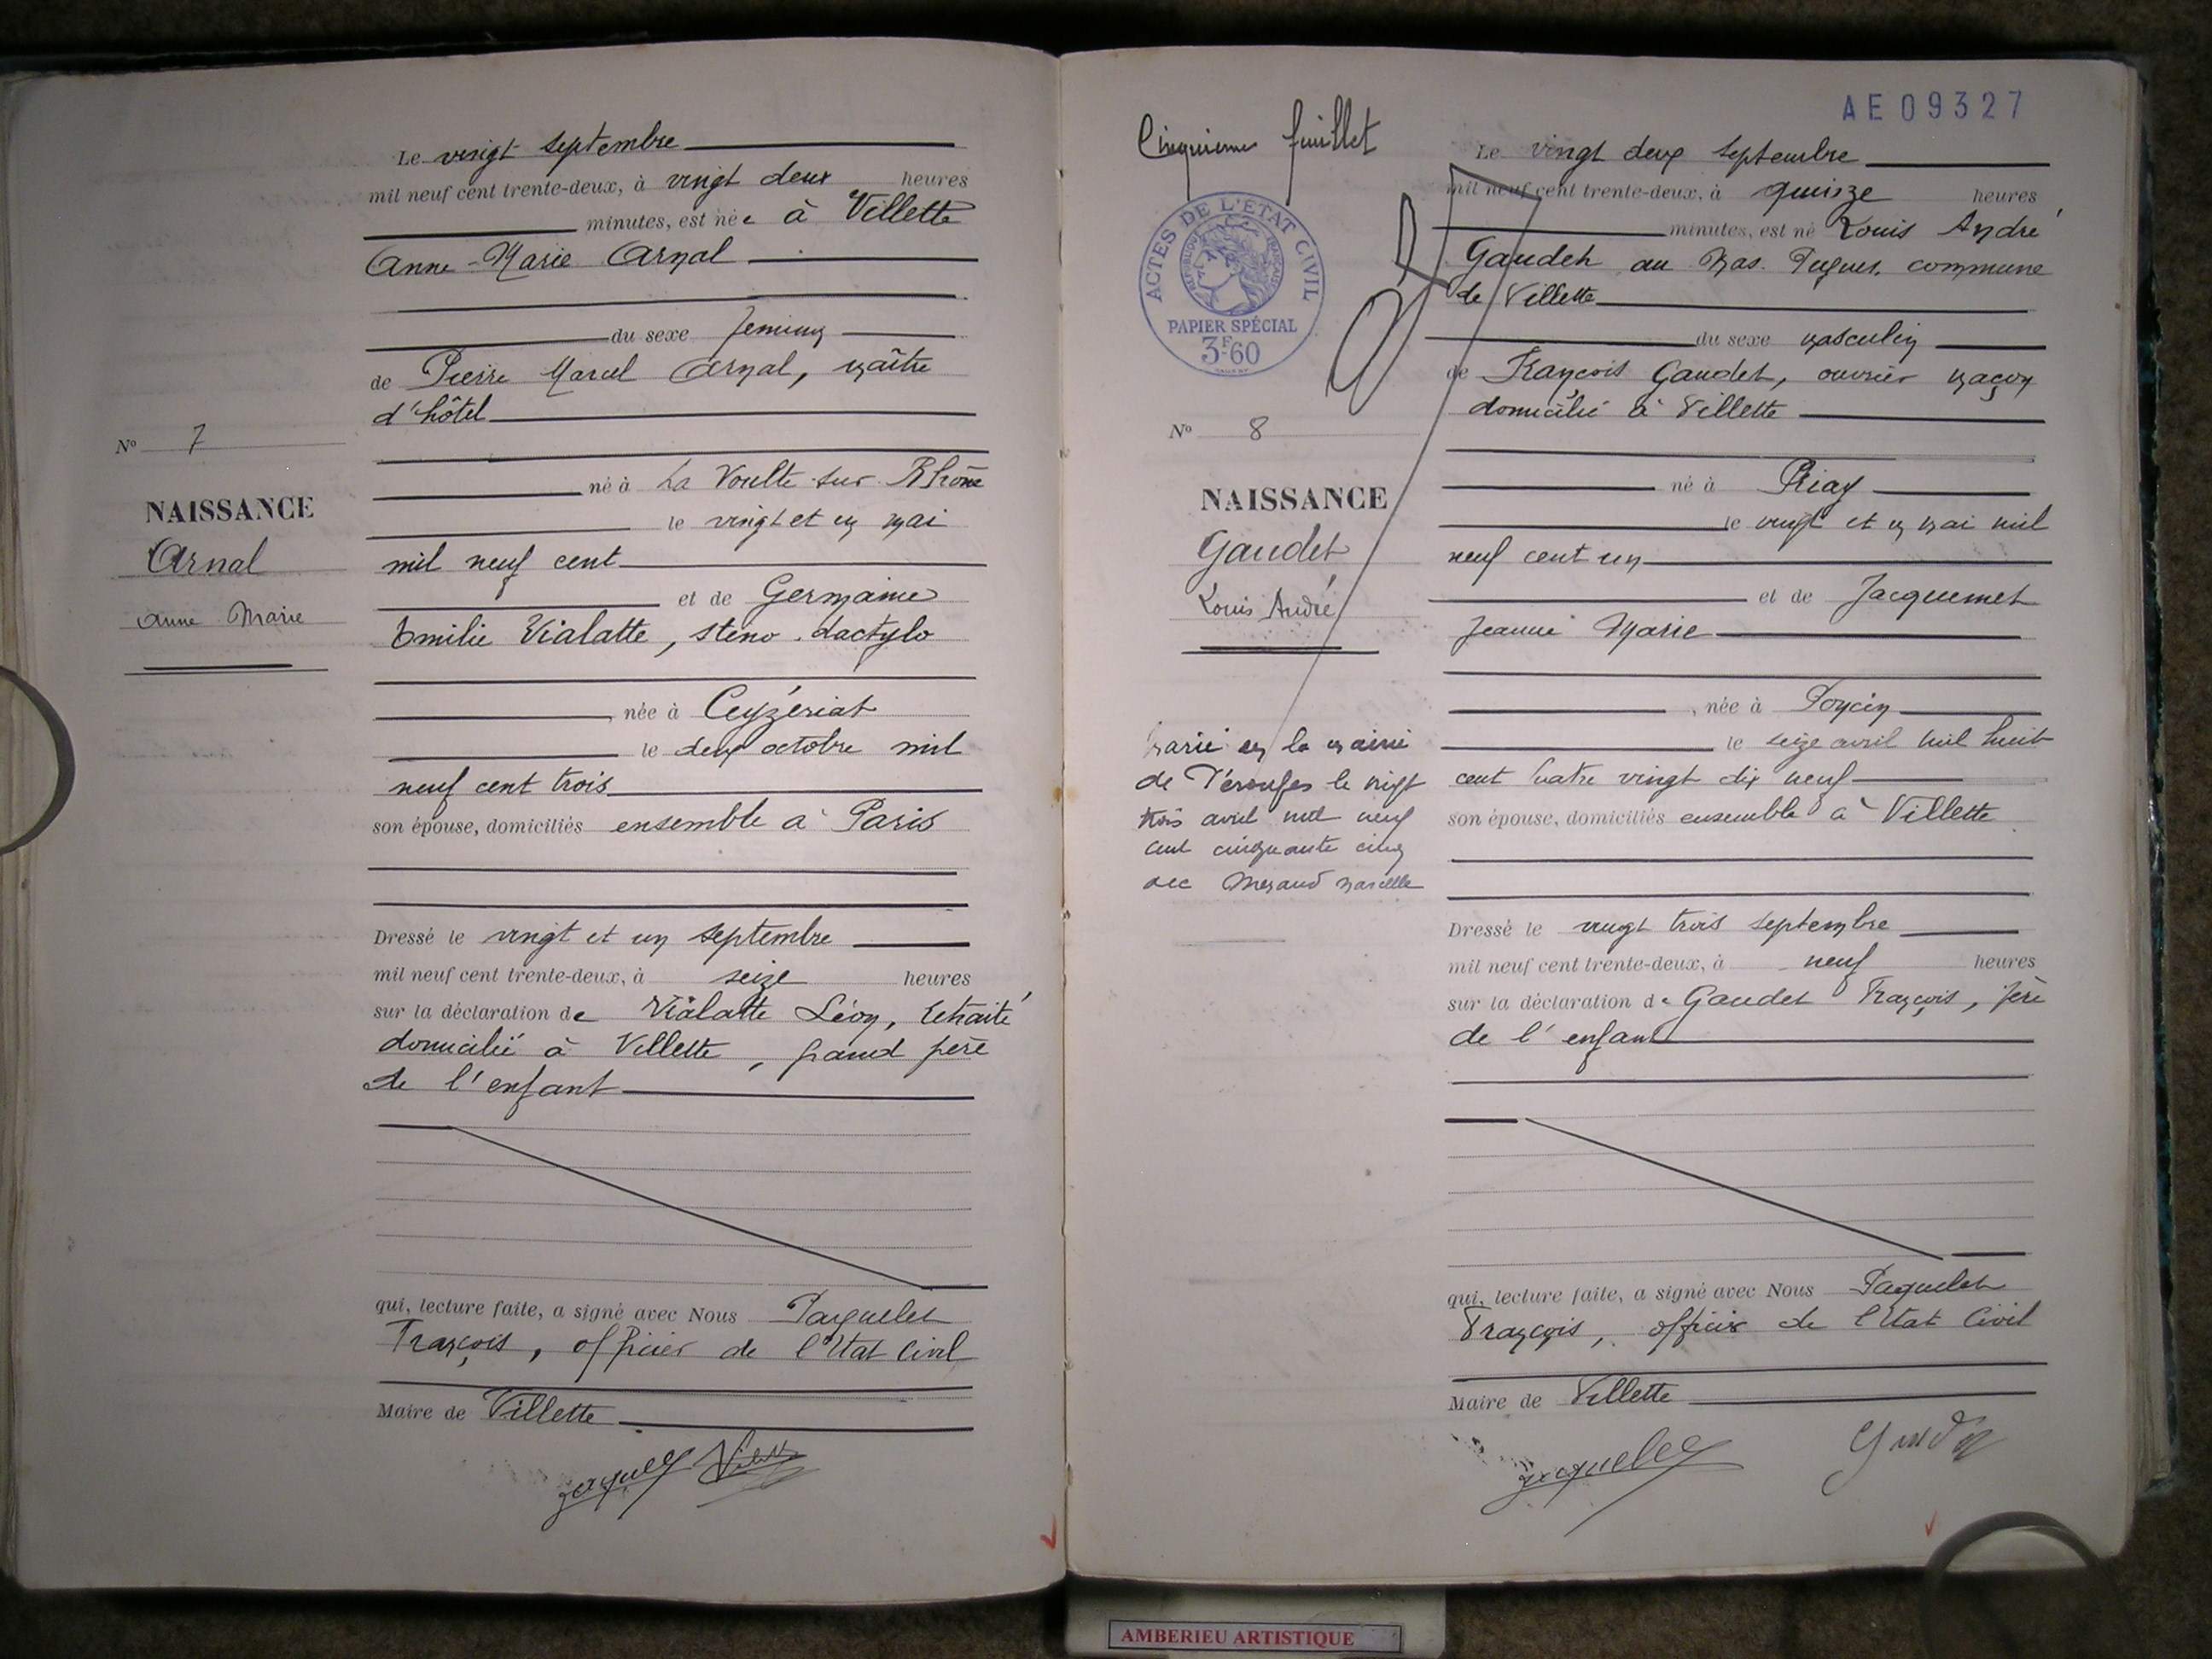 Le vingt septembre
mil neuf cent trente-deux, à vingt deux heures
minutes, est née à Villette
Anne-Marie Arnal
du sexe féminin
de Pierre Marcel Arnal, maître
d'hôtel
né à La Voulte sur Rhône
le vingt et un mai
mil neuf cent
et de Germaine
Emilie Vialatte, sténo-dactylo
née à Ceyzériat
le deux octobre mil
neuf cent trois
son épouse, domiciliés ensemble à Paris
Dressé le vingt et un septembre
mil neuf cent trente-deux, à seize heures
sur la déclaration de Vialatte Léon, retraité
domicilié à Villette, grand père
de l'enfant
qui, lecture faite, a signé avec Nous Paquelet
François, officier de l'Etat Civil
Maire de Villette
No 7
NAISSANCE
Arnal
Anne Marie
AE09327
Cinquième feuillet
ACTES DE L'ETAT CIVIL
REPUBLIQUE FRANÇAISE
PAPIER SPÉCIAL
3F60
No 8
NAISSANCE
Gaudet
Louis André
Marié en la mairie
de Pérouges le vingt
trois avril mil neuf
cent cinquante cinq
avec Marcelle
Le vingt deux septembre
mil neuf cent trente-deux, à quinze heures
minutes, est né Louis André
Gaudet au Mas commune
de Villette
du sexe masculin
de François Gaudet, ouvrier maçon
domicilié à Villette
né à
le vingt et un mai mil
neuf cent un
et de Jacquemet
Jeanne Marie
, née à Poncin
le seize avril mil huit
cent quatre vingt dix neuf
son épouse, domiciliés ensemble à Villette
Dressé le vingt trois septembre
mil neuf cent trente-deux, à neuf heures
sur la déclaration de Gaudet François, père
de l'enfant
qui, lecture faite, a signé avec Nous Paquelet
François, officier de l'Etat Civil
Maire de Villette
AMBERIEU ARTISTIQUE